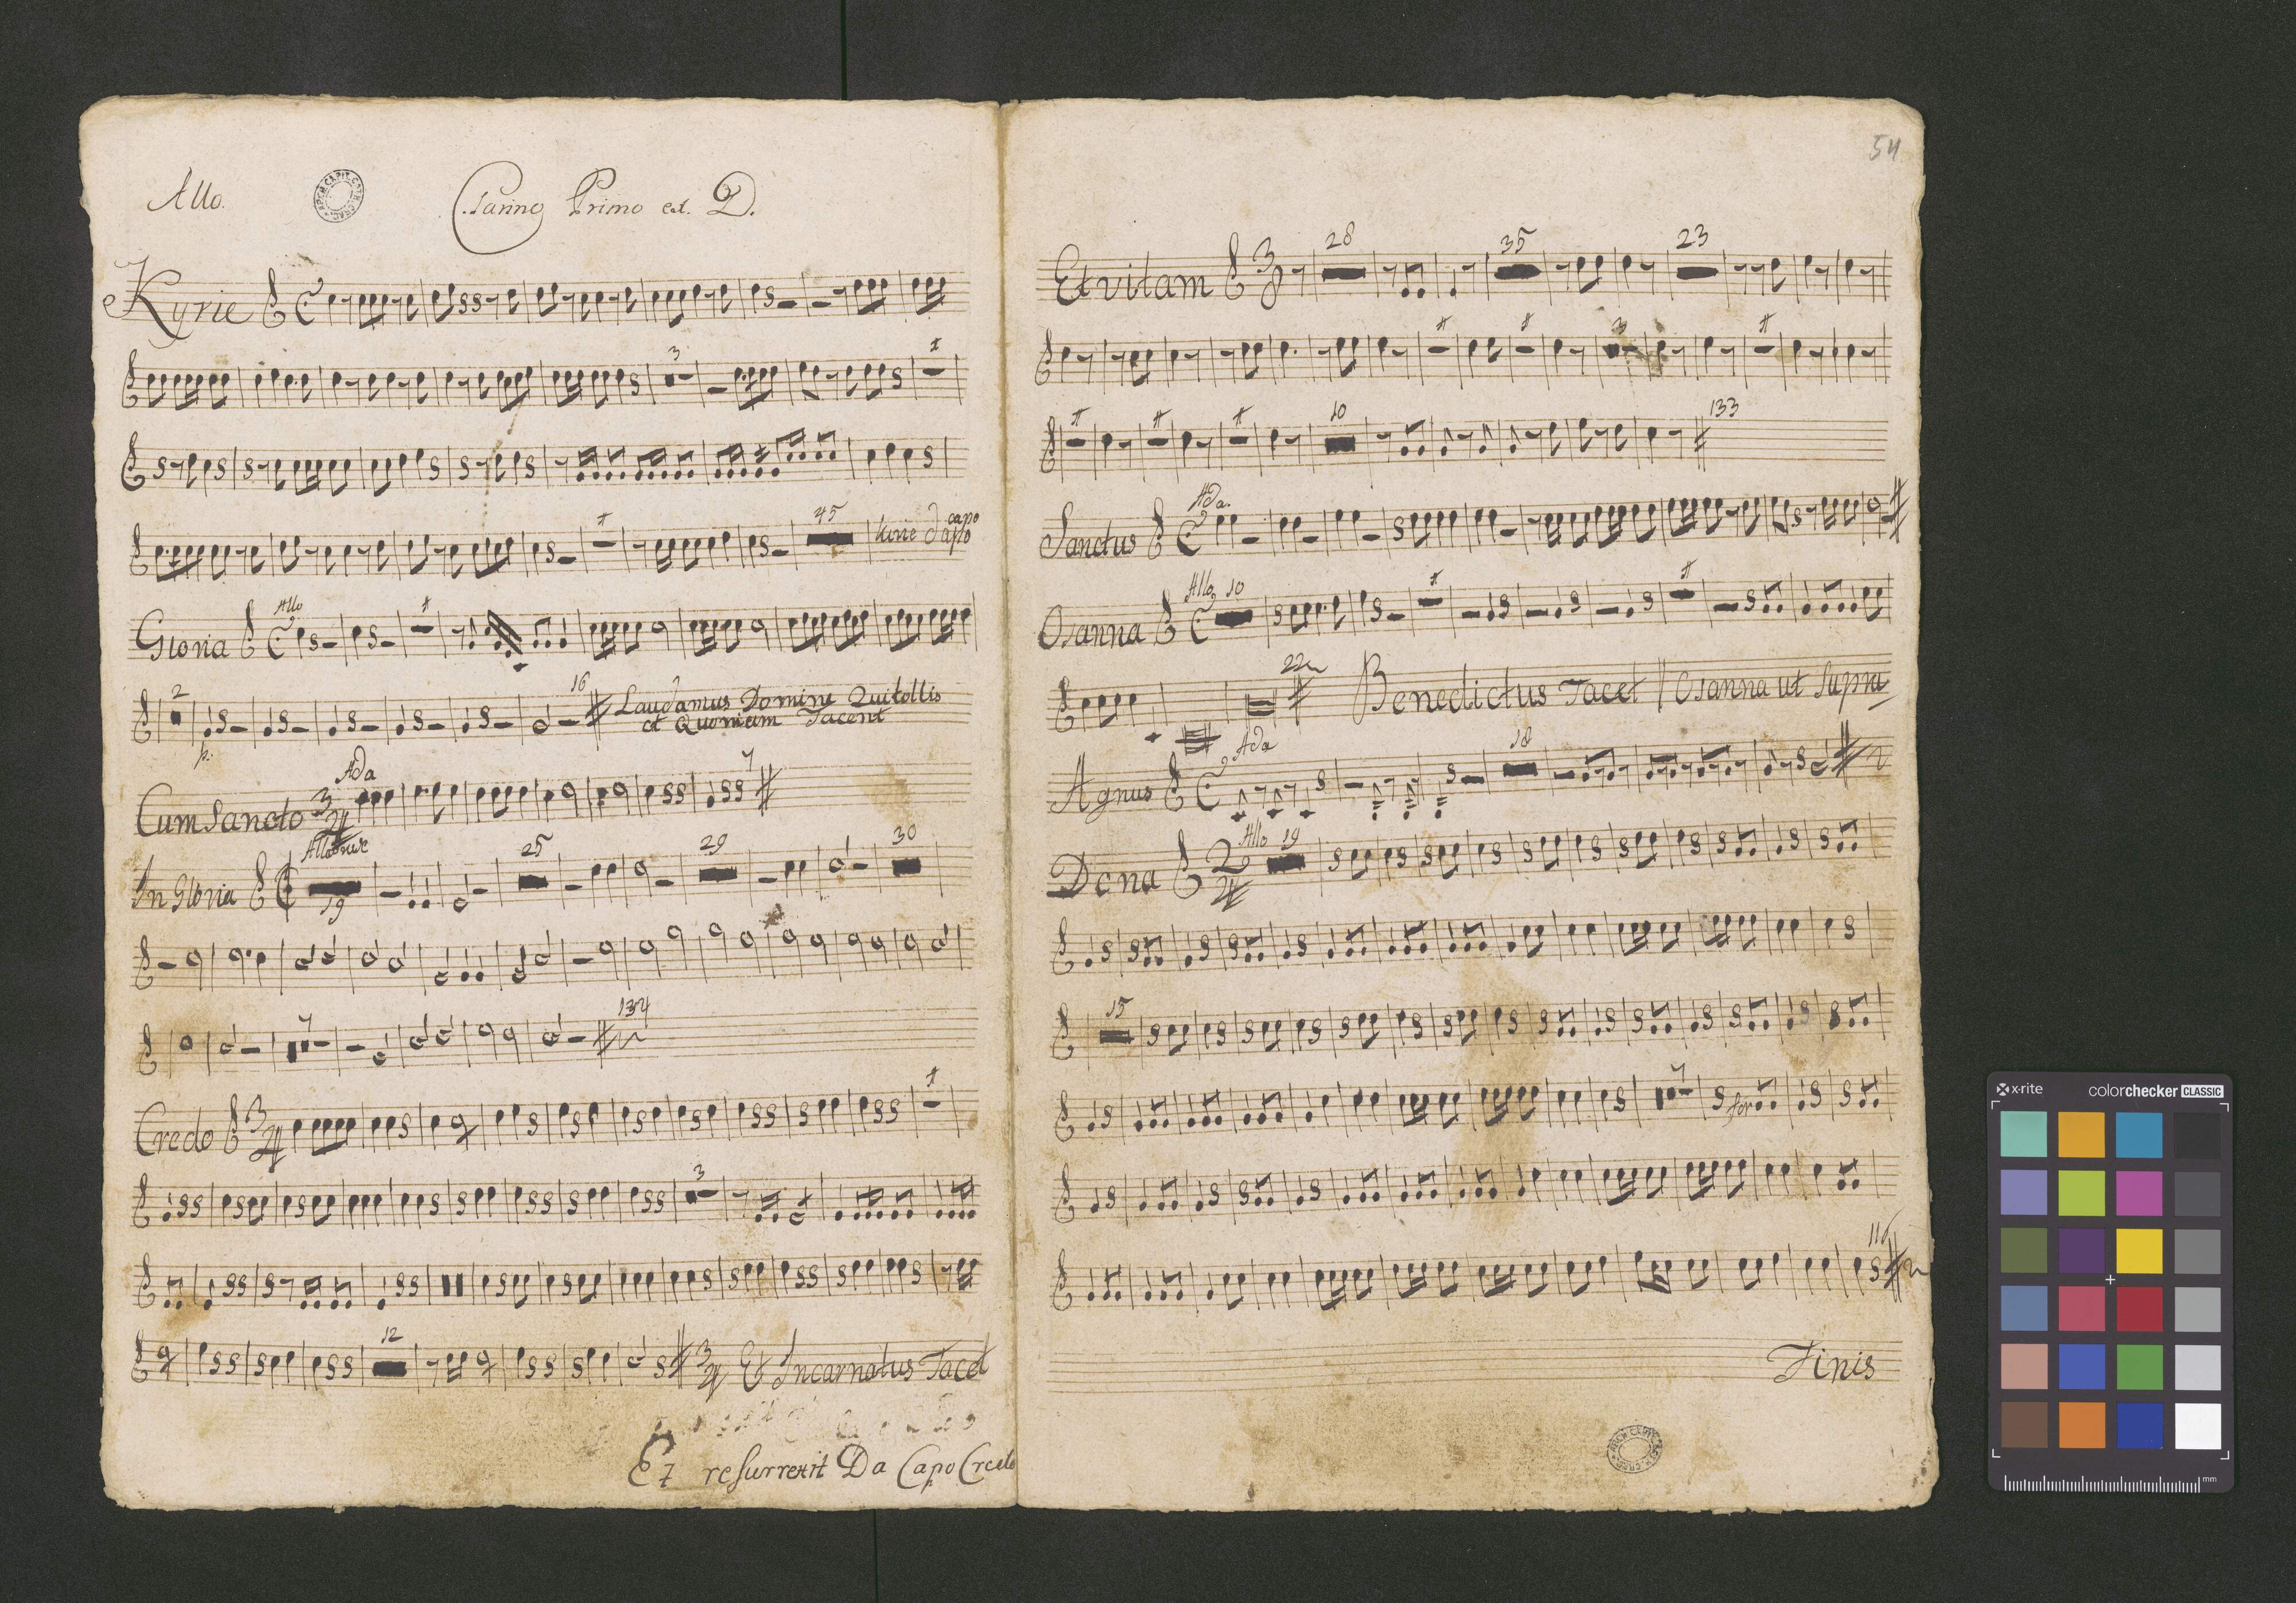 Allo.
Clarino Primo ex. D.
Kyrie
3
1
45
Kirie da capo
capo
Gloria
Allo
1
2
p.
16
Laudamus Domine Qui tollis
et Quoniam Tacent
Cum Sancto 3/4
Ada
7
In Gloria
19
25
29
30
7
134
Credo 3/4
1
3
12
3/4 Et Incarnatus Tacet
Et resurrexit Da Capo Credo
54
Et vitam 3/8
28
35
23
1
1
3
1
1
1
1
10
133
Sanctus
Ada.
Osanna
Allo
10
1
1
22
Benedictus Tacet
Osanna ut Supra
Agnus
Ada
18
Dona 2/4
Allo
19
15
7
for
116
Finis
x-rite
colorchecker CLASSIC
mm